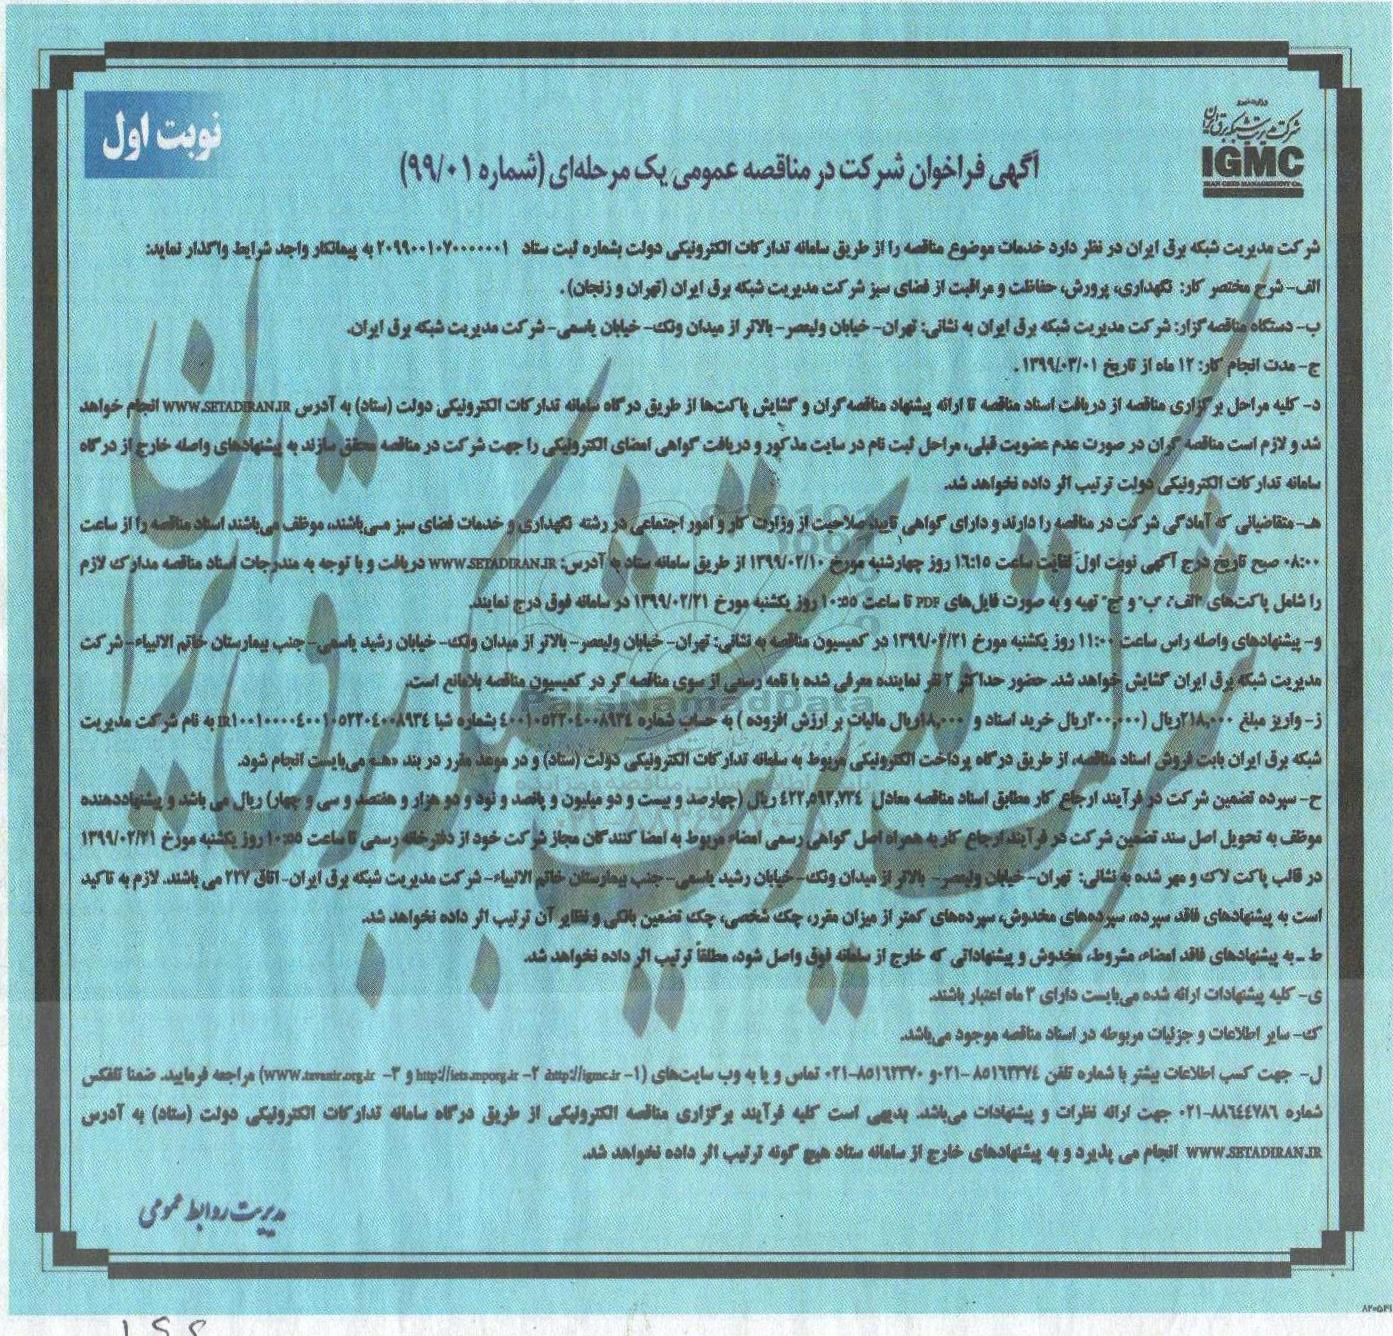 نوبت اول
وزارت نیرو
شرکت مدیریت شبکه برق ایران
IGMC
IRAN GRID MANAGEMENT Co.
آگهی فراخوان شرکت در مناقصه عمومی یک مرحله‌ای (شماره ۹۹/۰۱)
شرکت مدیریت شبکه برق ایران در نظر دارد خدمات موضوع مناقصه را از طریق سامانه تدارکات الکترونیکی دولت بشماره ثبت ستاد ۲۰۹۹۰۰۱۰۷۰۰۰۰۰۰۱ به پیمانکار واجد شرایط واگذار نماید:
الف- شرح مختصر کار: نگهداری، پرورش، حفاظت و مراقبت از فضای سبز شرکت مدیریت شبکه برق ایران (تهران و زنجان).
ب- دستگاه مناقصه گزار: شرکت مدیریت شبکه برق ایران به نشانی: تهران- خیابان ولیعصر- بالاتر از میدان ونک- خیابان یاسمی- شرکت مدیریت شبکه برق ایران.
ج- مدت انجام کار: ۱۲ ماه از تاریخ ۱۳۹۹/۰۳/۰۱ .
د- کلیه مراحل برگزاری مناقصه از دریافت اسناد مناقصه تا ارائه پیشنهاد مناقصه‌گران و گشایش پاکت‌ها از طریق درگاه سامانه تدارکات الکترونیکی دولت (ستاد) به آدرس WWW.SETADIRAN.IR انجام خواهد
شد و لازم است مناقصه گران در صورت عدم عضویت قبلی، مراحل ثبت نام در سایت مذکور و دریافت گواهی امضای الکترونیکی را جهت شرکت در مناقصه محقق سازند به پیشنهادهای واصله خارج از درگاه
سامانه تدارکات الکترونیکی دولت ترتیب اثر داده نخواهد شد.
هـ- متقاضیانی که آمادگی شرکت در مناقصه را دارند و دارای گواهی تایید صلاحیت از وزارت کار و امور اجتماعی در رشته نگهداری و خدمات فضای سبز می‌باشند، موظف می‌باشند اسناد مناقصه را از ساعت
۰۸:۰۰ صبح تاریخ درج آگهی نوبت اول لغایت ساعت ۱۶:۱۵ روز چهارشنبه مورخ ۱۳۹۹/۰۲/۱۰ از طریق سامانه ستاد به آدرس: WWW.SETADIRAN.IR دریافت و با توجه به مندرجات اسناد مناقصه مدارک لازم
را شامل پاکت‌های "الف"، "ب" و "ج" تهیه و به صورت فایل‌های PDF تا ساعت ۱۰:۵۵ روز یکشنبه مورخ ۱۳۹۹/۰۲/۲۱ در سامانه فوق درج نمایند.
و- پیشنهادهای واصله راس ساعت ۱۱:۰۰ روز یکشنبه مورخ ۱۳۹۹/۰۲/۲۱ در کمیسیون مناقصه به نشانی: تهران- خیابان ولیعصر- بالاتر از میدان ونک- خیابان رشید یاسمی- جنب بیمارستان خاتم الانبیاء- شرکت
مدیریت شبکه برق ایران گشایش خواهد شد. حضور حداکثر ۲ نفر نماینده معرفی شده با نامه رسمی از سوی مناقصه گر در کمیسیون مناقصه بلامانع است.
ز- واریز مبلغ ۲۱۸,۰۰۰ریال (۲۰۰,۰۰۰ریال خرید اسناد و ۱۸,۰۰۰ریال مالیات بر ارزش افزوده ) به حساب شماره ۴۰۰۱۰۵۲۲۰۴۰۰۸۹۳۴ بشماره شبا IR۱۰۰۱۰۰۰۰۴۰۰۱۰۵۲۲۰۴۰۰۸۹۳۴ به نام شرکت مدیریت
شبکه برق ایران بابت فروش اسناد مناقصه، از طریق درگاه پرداخت الکترونیکی مربوط به سامانه تدارکات الکترونیکی دولت (ستاد) و در موعد مقرر در بند «هـ» می‌بایست انجام شود.
ح- سپرده تضمین شرکت در فرآیند ارجاع کار مطابق اسناد مناقصه معادل ۴۲۲,۵۹۲,۷۳۴ ریال (چهارصد و بیست و دو میلیون و پانصد و نود و دو هزار و هفتصد و سی و چهار) ریال می باشد و پیشنهاددهنده
موظف به تحویل اصل سند تضمین شرکت در فرآیند ارجاع کار به همراه اصل گواهی رسمی امضاء مربوط به امضا کنندگان مجاز شرکت خود از دفترخانه رسمی تا ساعت ۱۰:۵۵ روز یکشنبه مورخ ۱۳۹۹/۰۲/۲۱
در قالب پاکت لاک و مهر شده به نشانی: تهران- خیابان ولیعصر- بالاتر از میدان ونک- خیابان رشید یاسمی- جنب بیمارستان خاتم الانبیاء- شرکت مدیریت شبکه برق ایران- اتاق ۲۲۷ می باشند. لازم به تاکید
است به پیشنهادهای فاقد سپرده، سپرده‌های مخدوش، سپرده‌های کمتر از میزان مقرر، چک شخصی، چک تضمین بانکی و نظایر آن ترتیب اثر داده نخواهد شد.
ط ـ به پیشنهادهای فاقد امضاء، مشروط، مخدوش و پیشنهاداتی که خارج از سامانه فوق واصل شود، مطلقاً ترتیب اثر داده نخواهد شد.
ی- کلیه پیشنهادات ارائه شده می‌بایست دارای ۳ ماه اعتبار باشند.
ک- سایر اطلاعات و جزئیات مربوطه در اسناد مناقصه موجود می‌باشد.
ل- جهت کسب اطلاعات بیشتر با شماره تلفن ۸۵۱۶۲۳۷۴-۰۲۱ و ۸۵۱۶۲۳۷۰-۰۲۱ تماس و یا به وب سایت‌های (۱- http://igmc.ir ۲- http://iets.mporg.ir و ۳- WWW.tavanir.org.ir) مراجعه فرمایید. ضمنا تلفکس
شماره ۸۸۶۴۴۷۸۶-۰۲۱ جهت ارائه نظرات و پیشنهادات می‌باشد. بدیهی است کلیه فرآیند برگزاری مناقصه الکترونیکی از طریق درگاه سامانه تدارکات الکترونیکی دولت (ستاد) به آدرس
WWW.SETADIRAN.IR انجام می پذیرد و به پیشنهادهای خارج از سامانه ستاد هیچ گونه ترتیب اثر داده نخواهد شد.
مدیریت روابط عمومی
ParsNamadData
۸۲۰۵۴۱